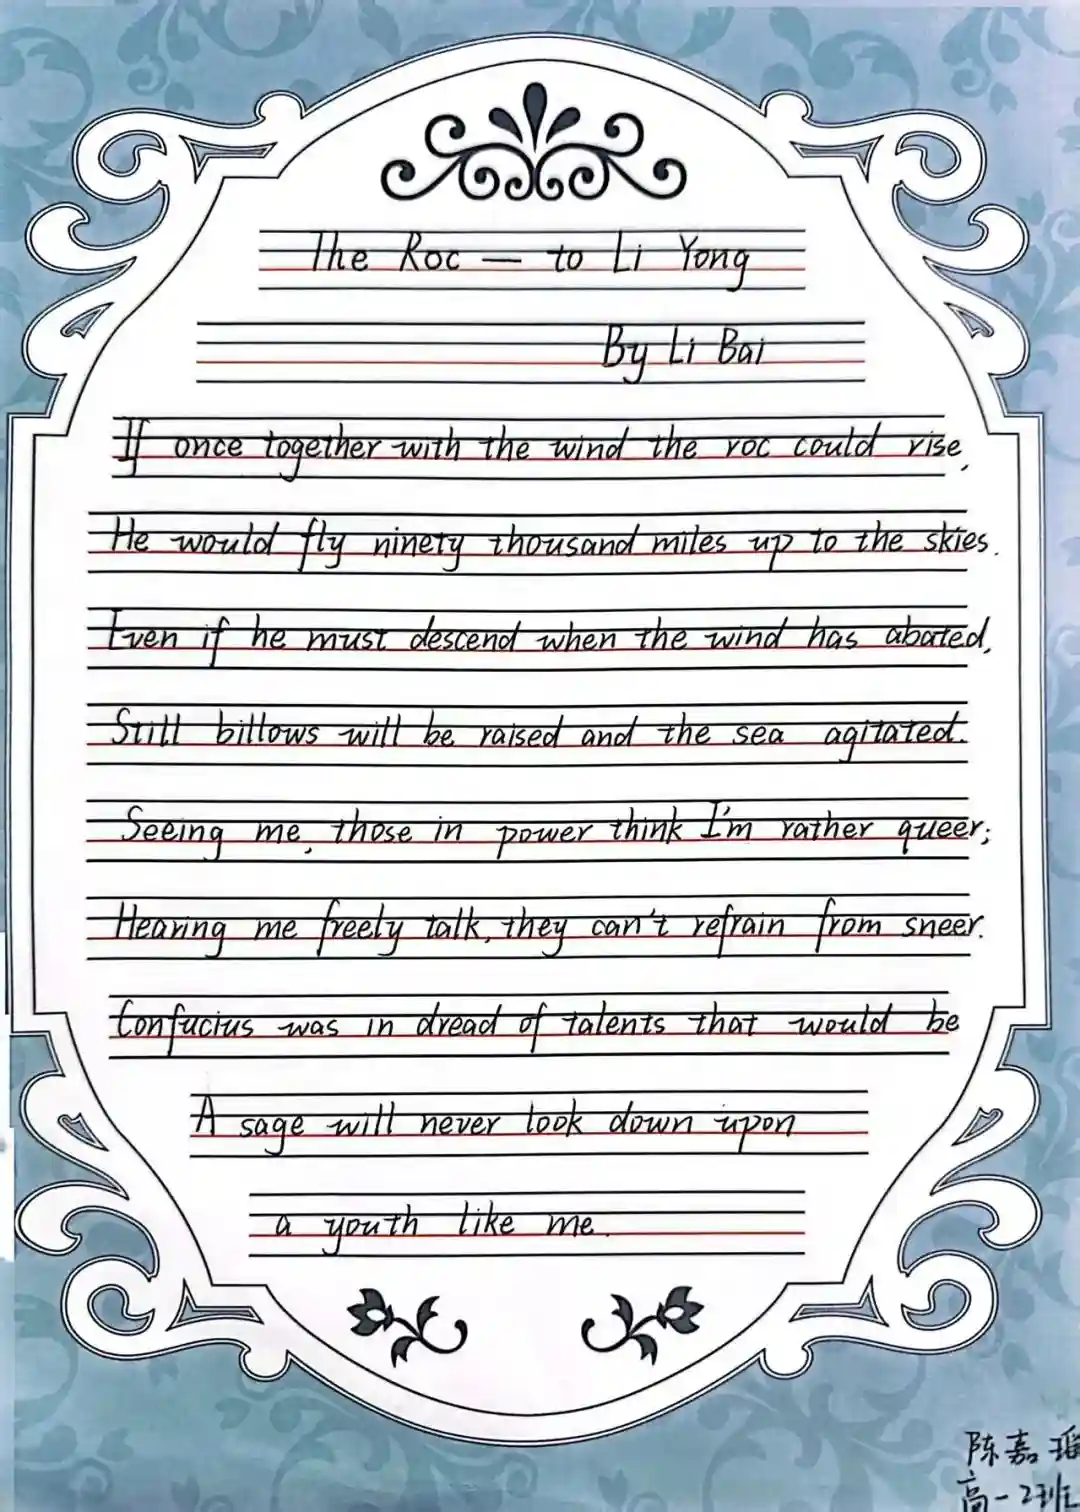 The Roc — to Li Yong
By Li Bai
If once together with the wind the roc could rise,
He would fly ninety thousand miles up to the skies.
Even if he must descend when the wind has abated,
Still billows will be raised and the sea agitated.
Seeing me, those in power think I'm rather queer;
Hearing me freely talk, they can't refrain from sneer.
Confucius was in dread of talents that would be
A sage will never look down upon
a youth like me.
陈嘉瑶
高一2班